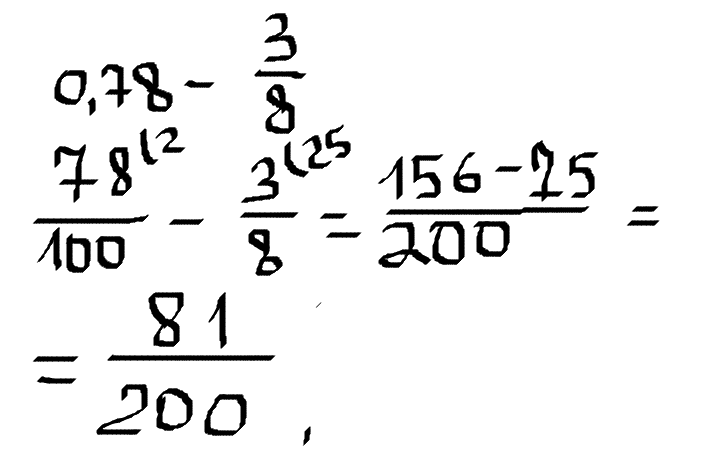 0,78 - 3/8
78(2/100 - 3(25/8 = 156-75/200 =
= 81/200 .